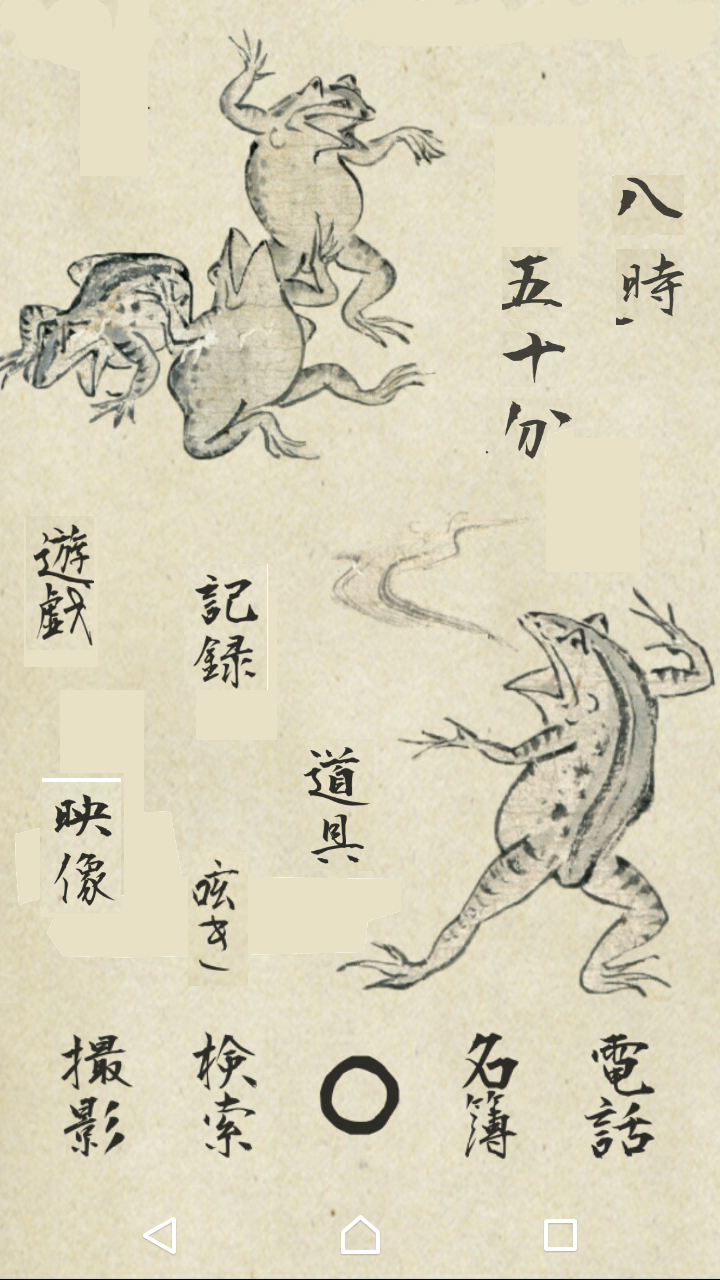 八時
五十分
遊戯
記録
道具
映像
呟き
撮影
検索
名簿
電話